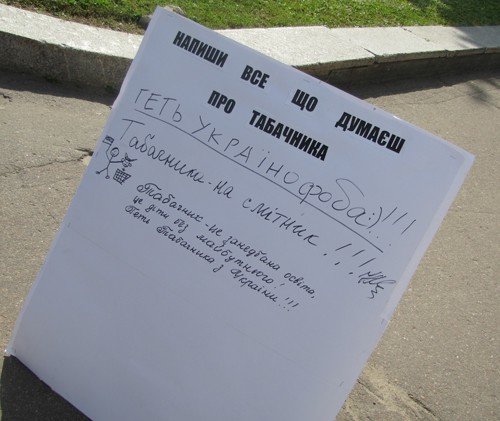 НАПИШИ ВСЕ ЩО ДУМАЄШ
ПРО ТАБАЧНИКА
ГЕТЬ УКРАЇНОФОБА:)!!!
Табачника - на смітник!!!
Табачник - не занедбана освіта,
це діти без майбутнього!
Геть Табачника з України!!!